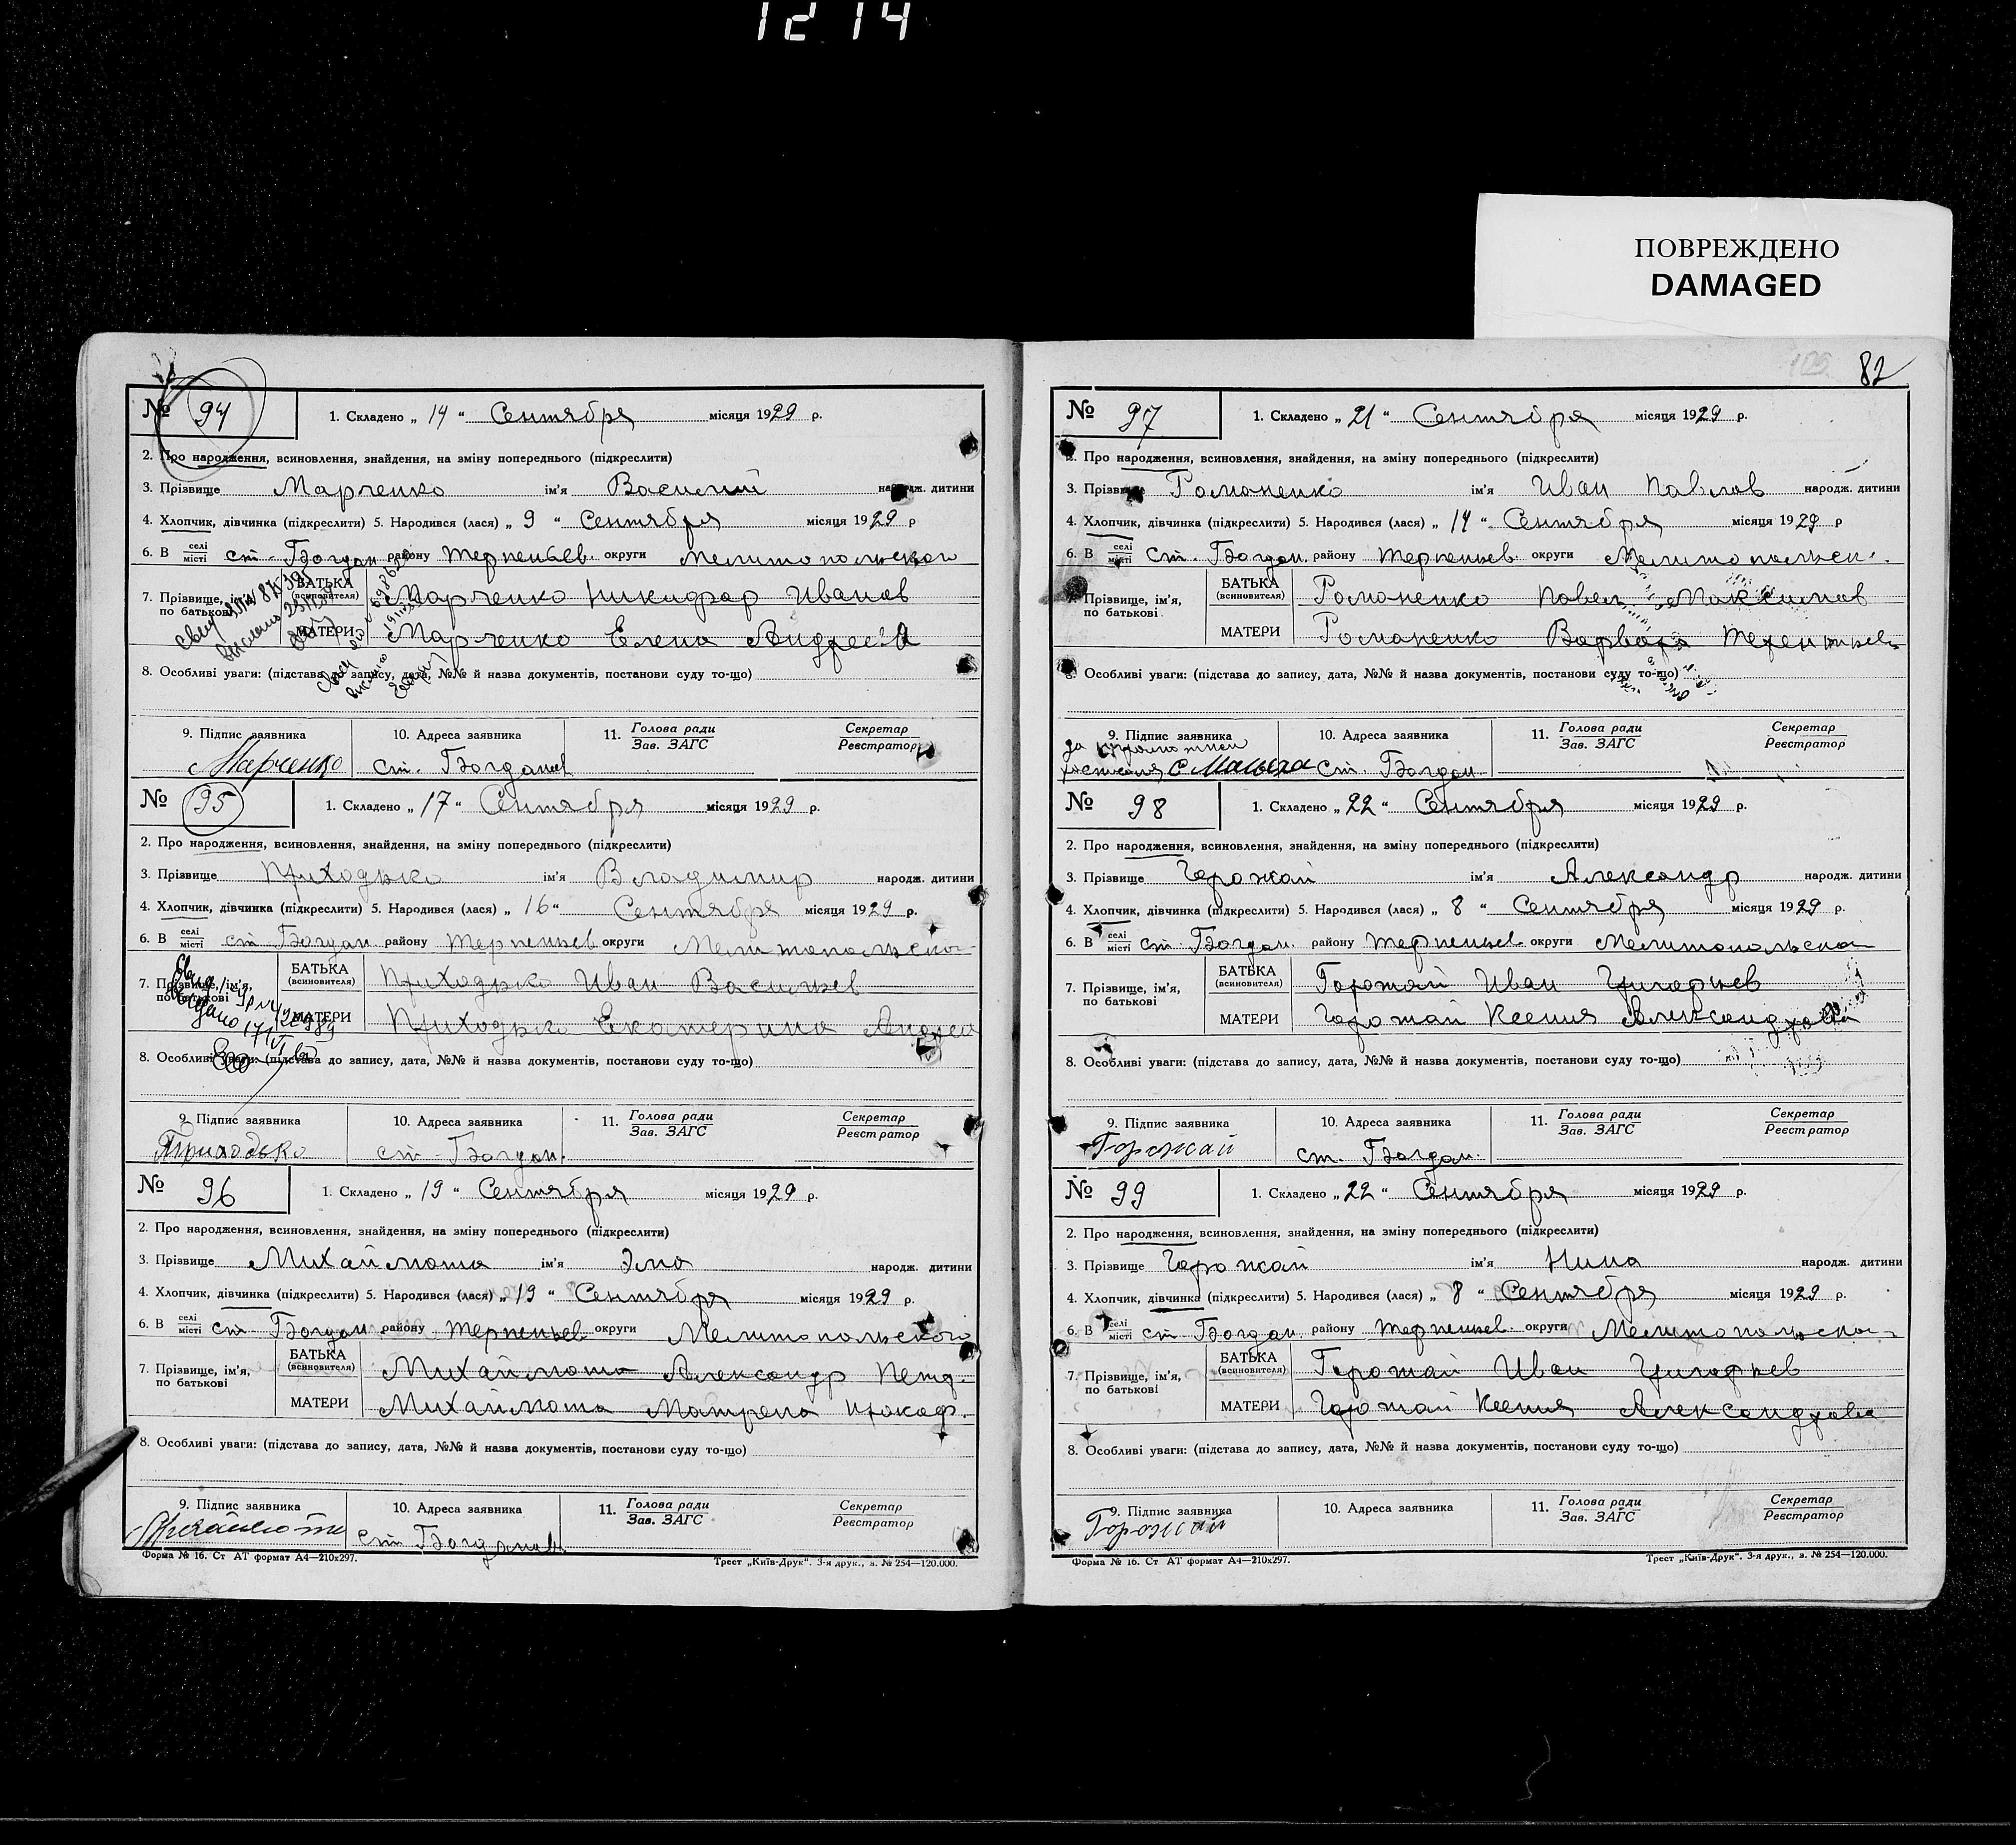 1214
ПОВРЕЖДЕНО
DAMAGED
№ 94
1. Складено „ 14 “ Сентября місяця 1929 р.
2. Про народження, всиновлення, знайдення, на зміну попереднього (підкреслити)
3. Прізвище Марченко ім'я Василий народж. дитини
4. Хлопчик, дівчинка (підкреслити) 5. Народився (лася) „ 9 “ Сентября місяця 1929 р
6. В селі місті ст. Богдан району Терпеньев. округи Мелитопольского
7. Прізвище, ім'я, по батькові
БАТЬКА (всиновителя) Марченко Никифар Иванов
МАТЕРИ Марченко Елена Андреев
8. Особливі уваги: (підстава до запису, дата, №№ й назва документів, постанови суду то-що)
9. Підпис заявника 10. Адреса заявника 11. Голова ради Секретар
Зав. ЗАГС Реєстратор
Марченко ст. Богданов
№ 95
1. Складено „ 17 “ Сентября місяця 1929 р.
2. Про народження, всиновлення, знайдення, на зміну попереднього (підкреслити)
3. Прізвище Приходько ім'я Владимир народж. дитини
4. Хлопчик, дівчинка (підкреслити) 5. Народився (лася) „ 16 “ Сентября місяця 1929 р.
6. В селі місті ст Богдан району Терпеньев округи Мелитопольско
7. Прізвище, ім'я, по батькові
БАТЬКА (всиновителя) Приходько Иван Васильев
МАТЕРИ Приходько Екатерина
8. Особливі уваги: (підстава до запису, дата, №№ й назва документів, постанови суду то-що)
9. Підпис заявника 10. Адреса заявника 11. Голова ради Секретар
Зав. ЗАГС Реєстратор
Приходько ст. Богдан.
№ 96
1. Складено „ 19 “ Сентября місяця 1929 р.
2. Про народження, всиновлення, знайдення, на зміну попереднього (підкреслити)
3. Прізвище Михайлюта ім'я Эма народж. дитини
4. Хлопчик, дівчинка (підкреслити) 5. Народився (лася) „ 19 “ Сентября місяця 1929 р.
6. В селі місті ст Богдан району Терпеньев округи Мелитопольского
7. Прізвище, ім'я, по батькові
БАТЬКА (всиновителя) Михайлюта Александр Петр.
МАТЕРИ Михайлюта Матрена Прокоф.
8. Особливі уваги: (підстава до запису, дата, №№ й назва документів, постанови суду то-що)
9. Підпис заявника 10. Адреса заявника 11. Голова ради Секретар
Зав. ЗАГС Реєстратор
ст Богданов
Форма № 16. Ст АТ формат А4—210х297. Трест „Київ-Друк“. 3-я друк., з. № 254—120.000.
82
№ 97
1. Складено „ 21 “ Сентября місяця 1929 р.
2. Про народження, всиновлення, знайдення, на зміну попереднього (підкреслити)
3. Прізвище Романенко ім'я Иван Павлов народж. дитини
4. Хлопчик, дівчинка (підкреслити) 5. Народився (лася) „ 14 “ Сентября місяця 1929 р
6. В селі місті ст. Богдан. району Терпеньев. округи Мелитопольск.
7. Прізвище, ім'я, по батькові
БАТЬКА (всиновителя) Романенко Павел Максимов
МАТЕРИ Романенко Варвара Терентьев
8. Особливі уваги: (підстава до запису, дата, №№ й назва документів, постанови суду то-що)
9. Підпис заявника 10. Адреса заявника 11. Голова ради Секретар
Зав. ЗАГС Реєстратор
ст. Богдан.
№ 98
1. Складено „ 22 “ Сентября місяця 1929 р.
2. Про народження, всиновлення, знайдення, на зміну попереднього (підкреслити)
3. Прізвище Горожай ім'я Александр народж. дитини
4. Хлопчик, дівчинка (підкреслити) 5. Народився (лася) „ 8 “ Сентября місяця 1929 р.
6. В селі місті ст Богдан. району Терпеньев. округи Мелитопольско
7. Прізвище, ім'я, по батькові
БАТЬКА (всиновителя) Горожай Иван Григорьев
МАТЕРИ Горожай Ксения Александров
8. Особливі уваги: (підстава до запису, дата, №№ й назва документів, постанови суду то-що)
9. Підпис заявника 10. Адреса заявника 11. Голова ради Секретар
Зав. ЗАГС Реєстратор
Горожай ст. Богдан.
№ 99
1. Складено „ 22 “ Сентября місяця 1929 р.
2. Про народження, всиновлення, знайдення, на зміну попереднього (підкреслити)
3. Прізвище Горожай ім'я Нина народж. дитини
4. Хлопчик, дівчинка (підкреслити) 5. Народився (лася) „ 8 “ Сентября місяця 1929 р.
6. В селі місті ст Богдан. району Терпеньев. округи Мелитопольско
7. Прізвище, ім'я, по батькові
БАТЬКА (всиновителя) Горожай Иван Григорьев
МАТЕРИ Горожай Ксения Александровн
8. Особливі уваги: (підстава до запису, дата, №№ й назва документів, постанови суду то-що)
9. Підпис заявника 10. Адреса заявника 11. Голова ради Секретар
Зав. ЗАГС Реєстратор
Горожай
Форма № 16. Ст АТ формат А4—210х297. Трест „Київ-Друк“. 3-я друк., з. № 254—120.000.